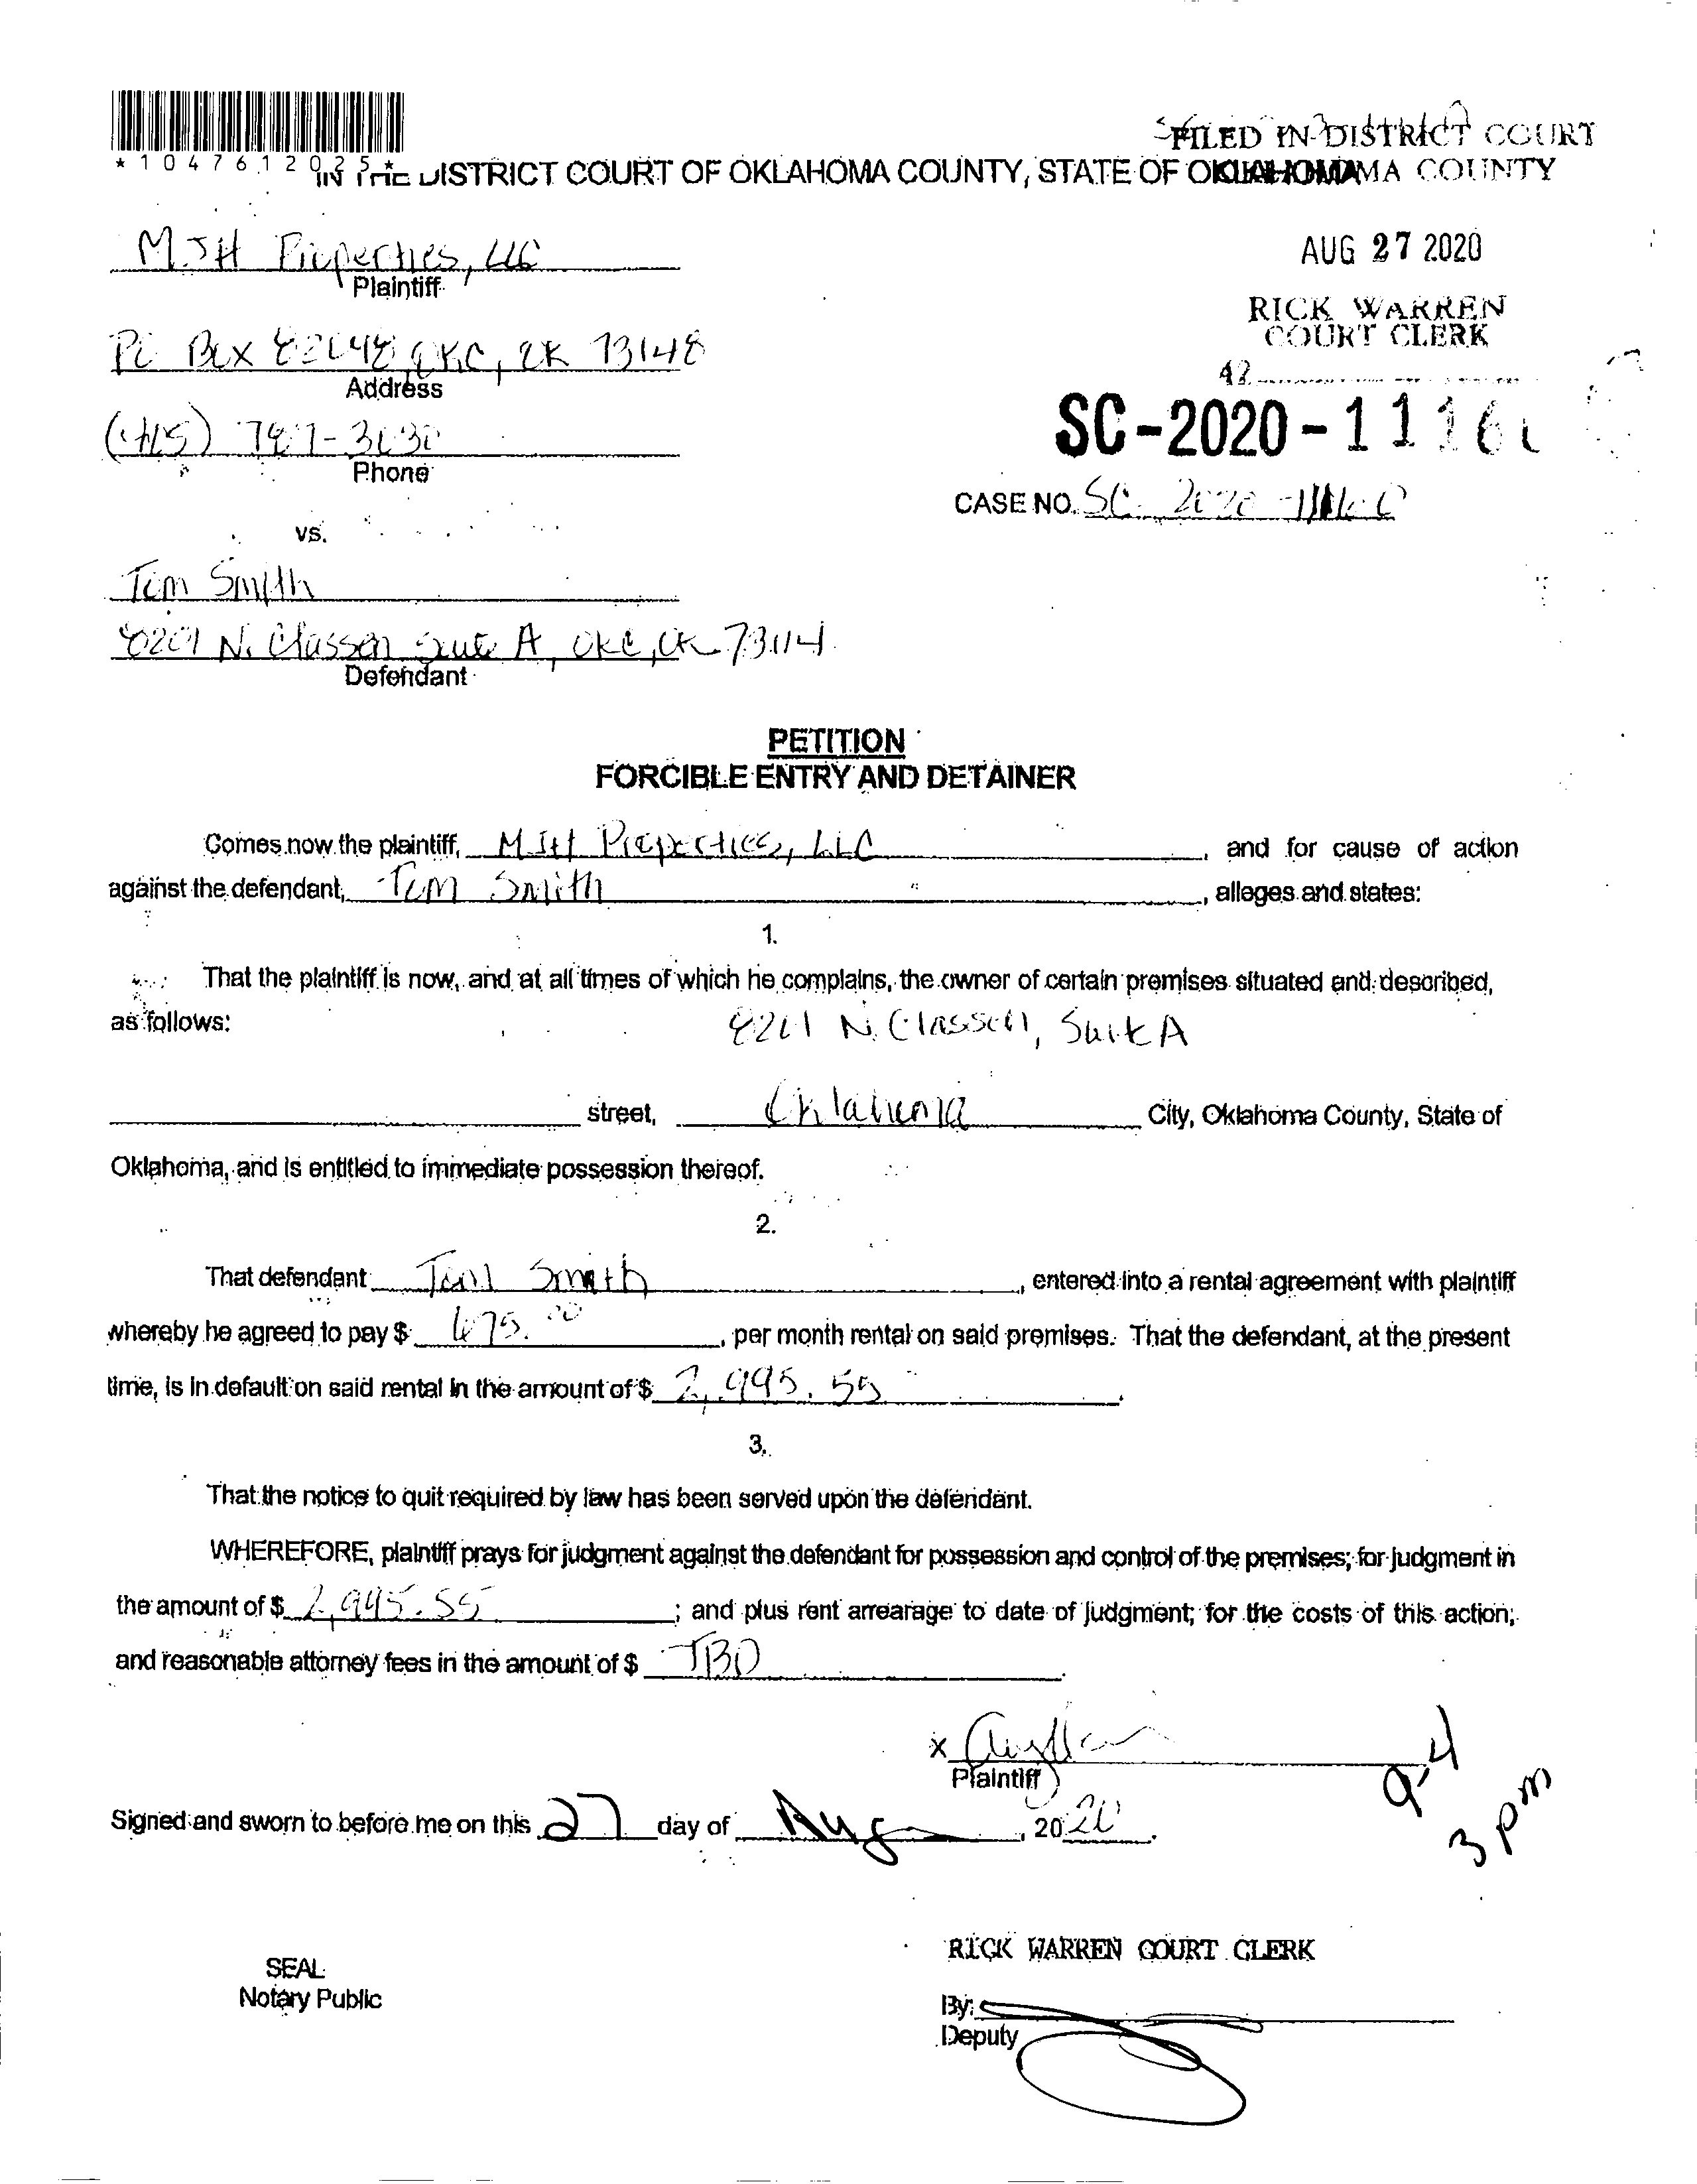 *1047612025*
FILED IN DISTRICT COURT
OKLAHOMA COUNTY
IN THE DISTRICT COURT OF OKLAHOMA COUNTY, STATE OF OKLAHOMA
MJH Properties, LLC
Plaintiff
AUG 27 2020
RICK WARREN
COURT CLERK
PO Box 82048 OKC, OK 73148
Address
42
SC-2020-1116
(405) 787-3030
Phone
CASE NO. SC-2020-11160
vs.
Tom Smith
8201 N. Classen Suite A, OKC, OK 73114
Defendant
PETITION
FORCIBLE ENTRY AND DETAINER
Comes now the plaintiff, MJH Properties, LLC, and for cause of action
against the defendant, Tom Smith, alleges and states:
1.
That the plaintiff is now, and at all times of which he complains, the owner of certain premises situated and described,
as follows: 8201 N. Classen, Suite A
street, Oklahoma City, Oklahoma County, State of
Oklahoma, and is entitled to immediate possession thereof.
2.
That defendant Tom Smith, entered into a rental agreement with plaintiff
whereby he agreed to pay $ 675.00, per month rental on said premises. That the defendant, at the present
time, is in default on said rental in the amount of $ 2,995.55.
3.
That the notice to quit required by law has been served upon the defendant.
WHEREFORE, plaintiff prays for judgment against the defendant for possession and control of the premises; for judgment in
the amount of $ 2,995.55; and plus rent arrearage to date of judgment; for the costs of this action;
and reasonable attorney fees in the amount of $ TBD.
X
Plaintiff
9-4
3 pm
Signed and sworn to before me on this 27 day of Aug, 2020.
RICK WARREN COURT CLERK
SEAL
Notary Public
By:
Deputy